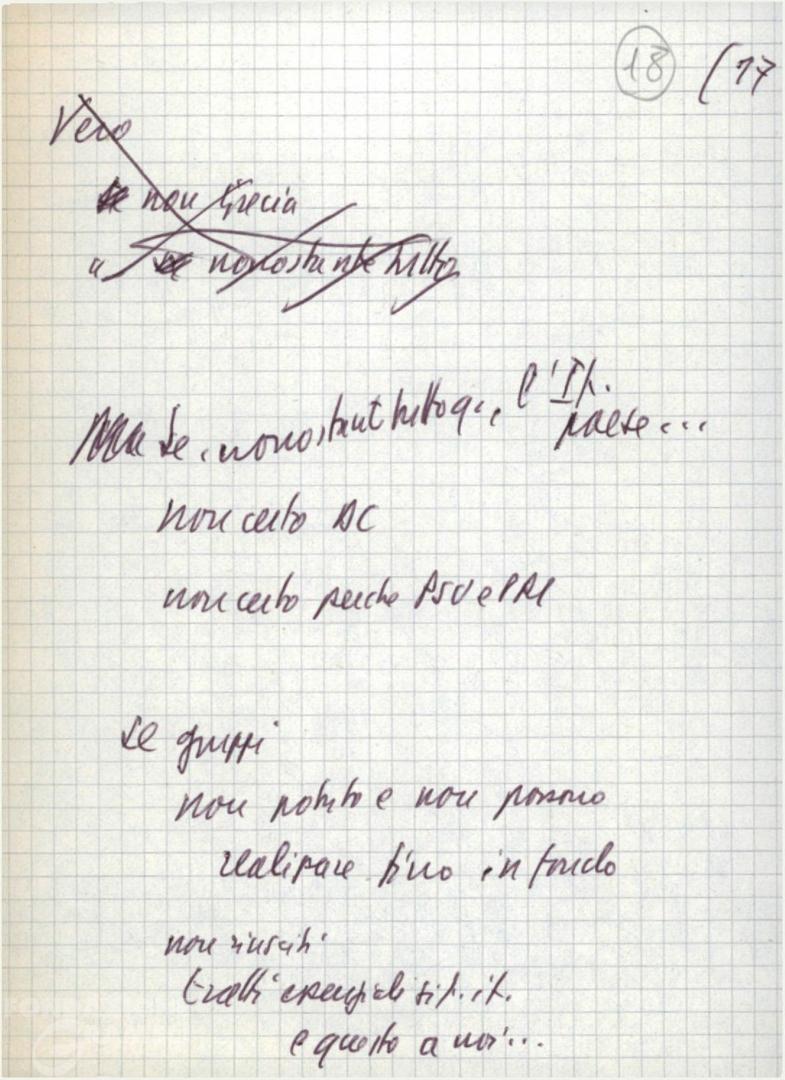 18 (17
Vero
se non Grecia
" se nonostante tutto
Ma se, nonostant tutto q.., l'It.
paese...
non certo DC
non certo perche PSU e PRI
se gruppi
non potuto e non possono
realizzare fino in fondo
non riusciti
tratti essenziali sit. it.
e questo a noi...